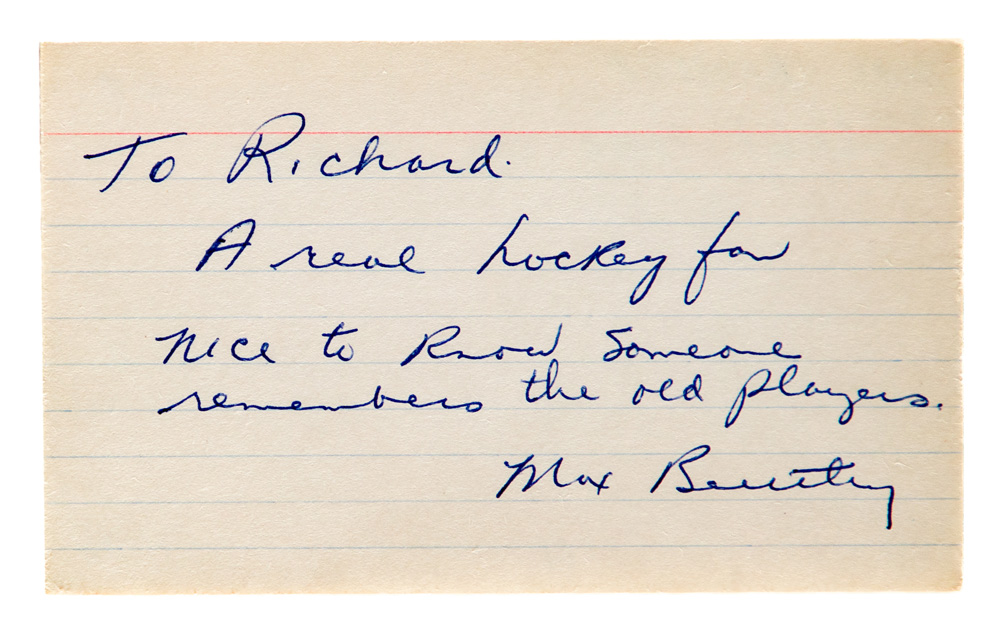 To Richard.
A real hockey fan
Nice to Know Someone
remembers the old players.
Max Bentley